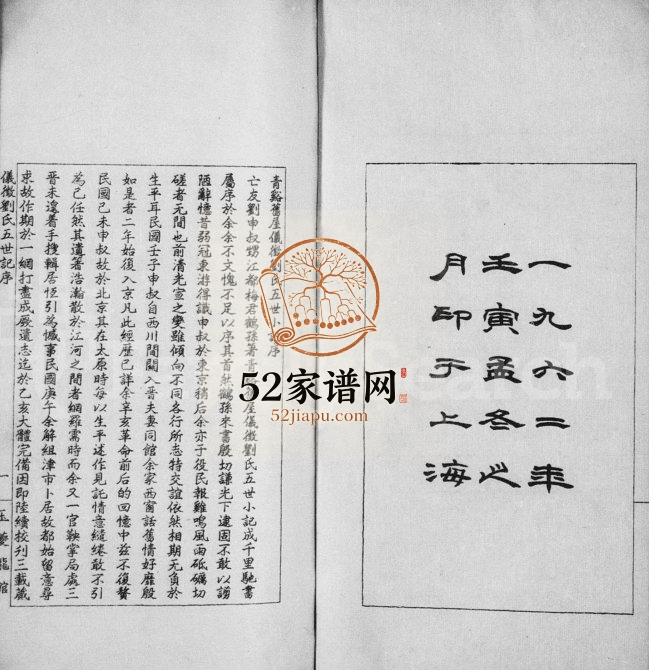 一九六二年
壬寅孟冬之
月印于上海
青谿舊屋儀徵劉氏五世小記序
亡友劉申叔甥江都梅君鶴孫著青 屋儀徵劉氏五世小記成千里馳書
屬序於余余不文愧不足以序其首然鶴孫來書殷切謙光下逮固不敢以謭
陋辭憶昔弱冠東游得識申叔於東京稍后余亦于役民報雞鳴風雨砥礪切
磋者无間也前清光宣之變雖傾向不同各行所志特交誼依然相期无負於
生平耳民國壬子申叔自西川間關入晉夫妻同館余家西窗話舊情好靡殷
如是者二年始後入京凡此經歷已詳余辛亥革命前后的回憶中茲不復贅
民國己未申叔故於北京其在太原時每以生平述作見託情意繾綣敢不引
為己任然其遺著浩瀚散於江河之間者網羅需時而余又一官鞅掌局處三
晉未遑着手搜輯居恆引為憾事民國庚午余解組津市卜居故都始留意尋
求故作期於一網打盡成厥遺志迄於乙亥大體完備因即陸續校刊三載蕆
儀徵劉氏五世記序
一
玉 龍館
52家谱网
52jiapu.com